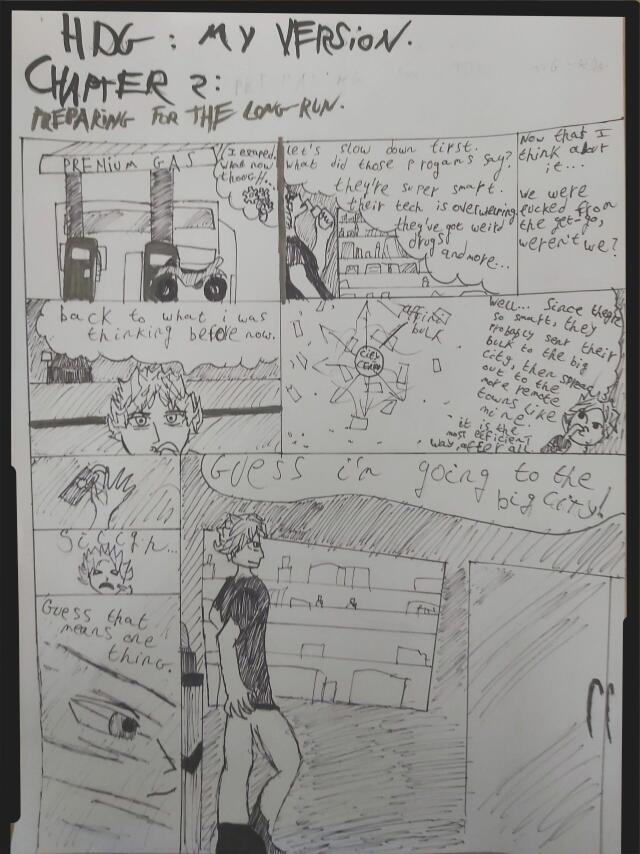 HDG: MY VERSION.
CHAPTER 2:
PREPARING FOR THE LONG-RUN.
PREMIUM GAS
I escaped.
what now
though..
Let's slow down first.
What did those progams say?
they're super smart.
their tech is overwearing
they've got weird
drugs
and more...
Now that I
think about
it...
we were
fucked from
the get-go,
weren't we?
back to what i was
thinking before now.
affini
bulk
CITY
CENTR
Well... Since they're
so smart, they
probably sent their
bulk to the big
city, then spreads
out to the
more remote
towns like
mine.
it is the
most efficient
way, after all.
Siiigh...
Guess that
means one
thing.
Guess i'm going to the
big city!